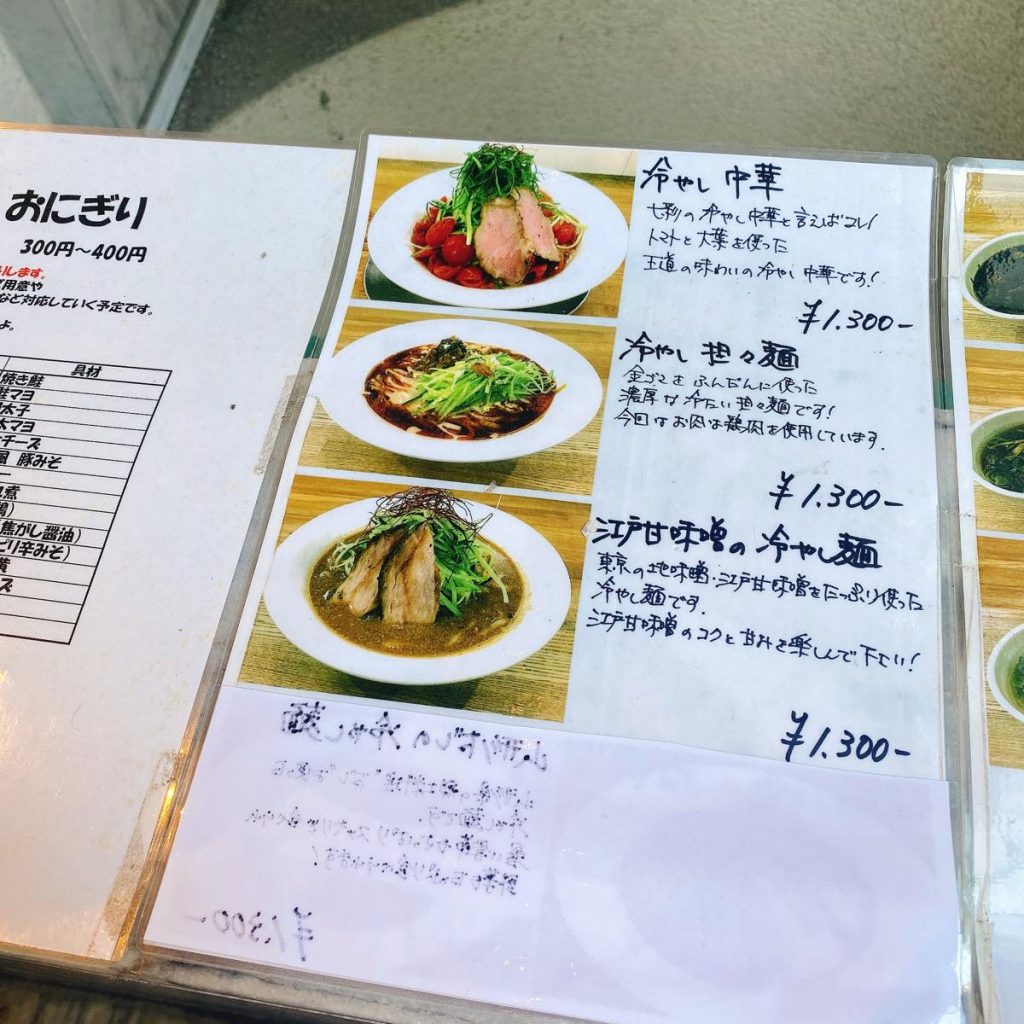 おにぎり
300円～400円
します。
用意や
など対応していく予定です。
よ。
具材
焼き鮭
鮭マヨ
太子
太マヨ
チーズ
風 豚みそ
煮
焦がし醤油）
どり辛みそ）
冷やし 中華
七彩の冷やし中華と言えばコレ！
トマトと大葉を使った
王道の味わいの冷やし中華です！
￥1.300-
冷やし 担々麺
金ゴマをふんだんに使った
濃厚な冷たい担々麺です！
今回はお肉は鶏肉を使用しています.
￥1.300-
江戸甘味噌の 冷やし麺
東京の地味噌・江戸甘味噌をたっぷり使った
冷やし麺です.
江戸甘味噌のコクと甘みを楽しんで下さい！
￥1.300-
山形だしの冷やし麺
冷やし麺です.
￥1.300-